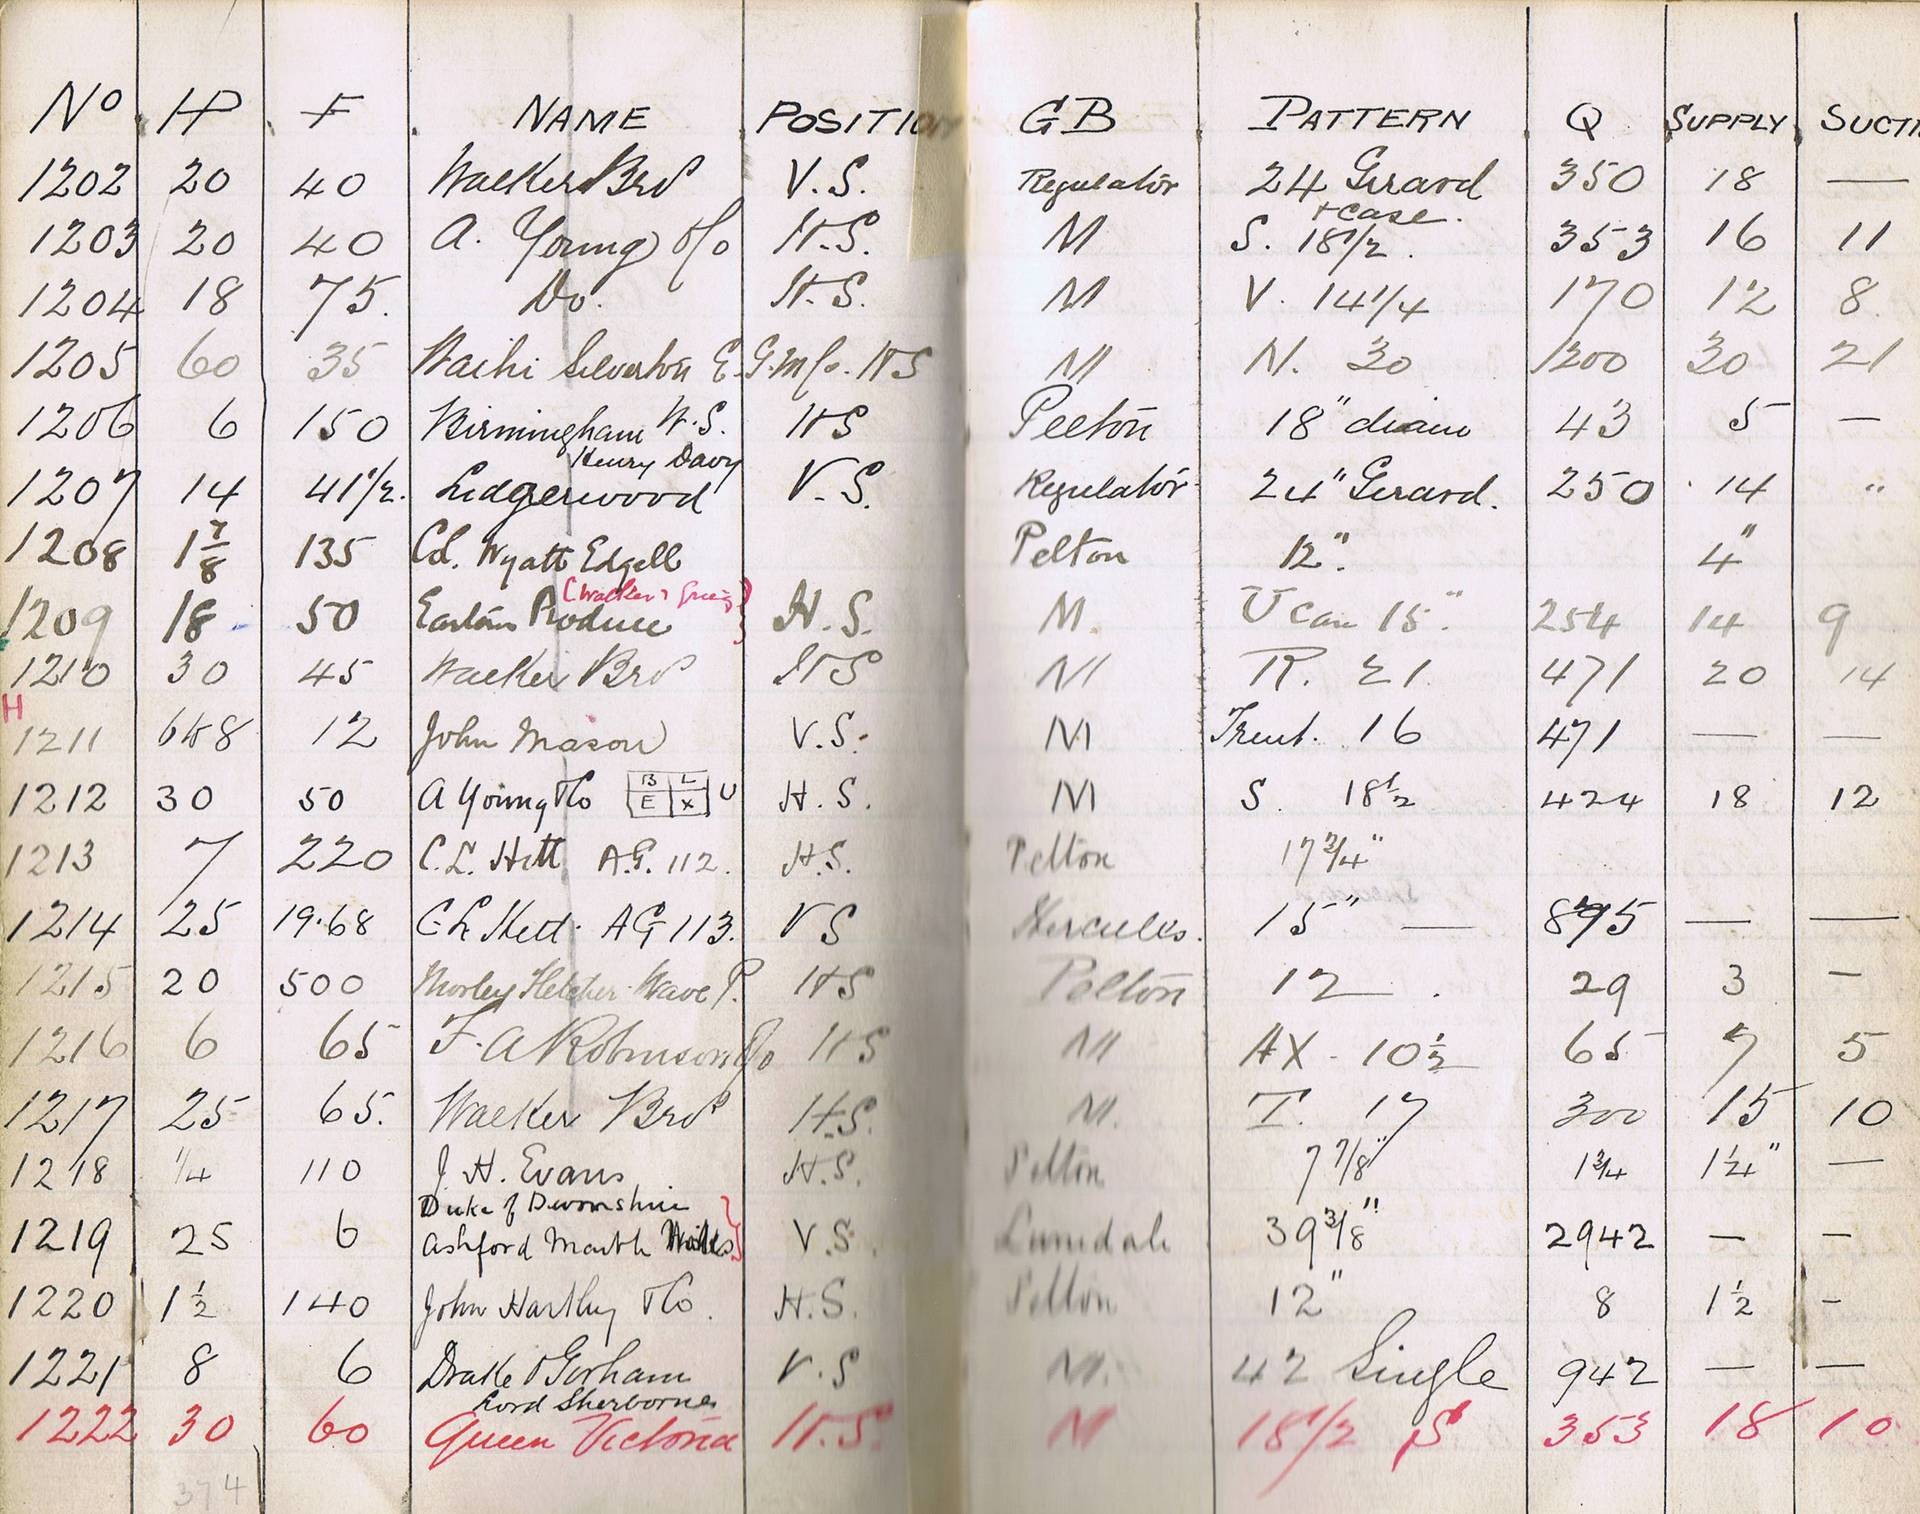 No HP F NAME POSITION GB PATTERN Q SUPPLY SUCTI
1202 20 40 Walker Bros V.S. Regulator 24 Girard 350 18 —
+ case.
1203 20 40 A. Young & Co H.S. M S. 18 1/2. 353 16 11
1204 18 75. Do. H.S. M V. 14 1/4 170 12 8
1205 60 35 Waihi Silverton E. G.M Co. HS M N. 30 1200 30 21
1206 6 150 Birmingham W.S. HS Pelton 18" diam 43 5 —
Henry Davy
1207 14 41 1/2. Lidgerwood V.S. Regulator 24" Girard. 250 14 "
1208 1 7/8 135 Col. Wyatt Edgell Pelton 12". 4"
(Walker & Greig)
1209 18 50 Eastern Produce H.S. M. U Can 15". 254 14 9
1210 30 45 Walker Bros HS M R. 21. 471 20 14
H
1211 6 & 8 12 John Mason V.S. M Trent. 16 471 — —
1212 30 50 A Young & Co B L E X U H.S. M S. 18 1/2 424 18 12
1213 7 220 C.L. Hett A.G. 112. H.S. Pelton 17 3/4"
1214 25 19.68 C L Hett. AG 113. VS Hercules. 15" — 895 — —
1215 20 500 Morley Fletcher Wave P. HS Pelton 12 . 29 3 —
1216 6 65 F. A Robinson & Co HS M AX - 10 1/2 65 7 5
1217 25 65. Walker Bros H.S. M. T. 17 300 15 10
1218 1/4 110 J. H. Evans H.S. Pelton 7 7/8" 1 3/4 1 1/4" —
Duke of Devonshire
1219 25 6 Ashford Marble Works V.S. Lunedale 39 3/8" 2942 — —
1220 1 1/2 140 John Hartley & Co. H.S. Pelton 12" 8 1 1/2 -
1221 8 6 Drake & Gorham V.S M. 42 Single 942 — —
Lord Sherbornes
1222 30 60 Queen Victoria H.S. M 18 1/2 S 353 18 10
374